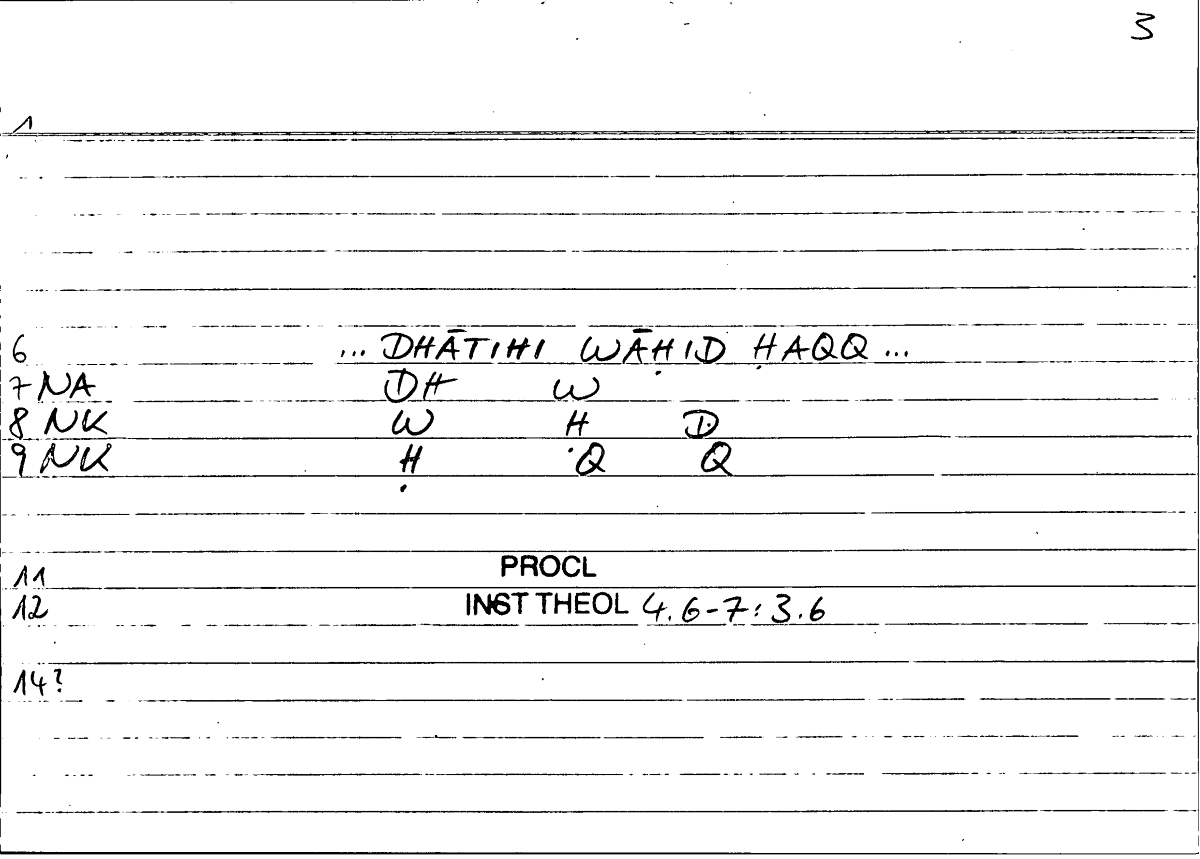 3
1
6 ... DHĀTIHI WĀḤID ḤAQQ ...
7 NA DH W
8 NK W Ḥ D
9 NK Ḥ Q Q
11 PROCL
12 INST THEOL 4.6-7:3.6
14?